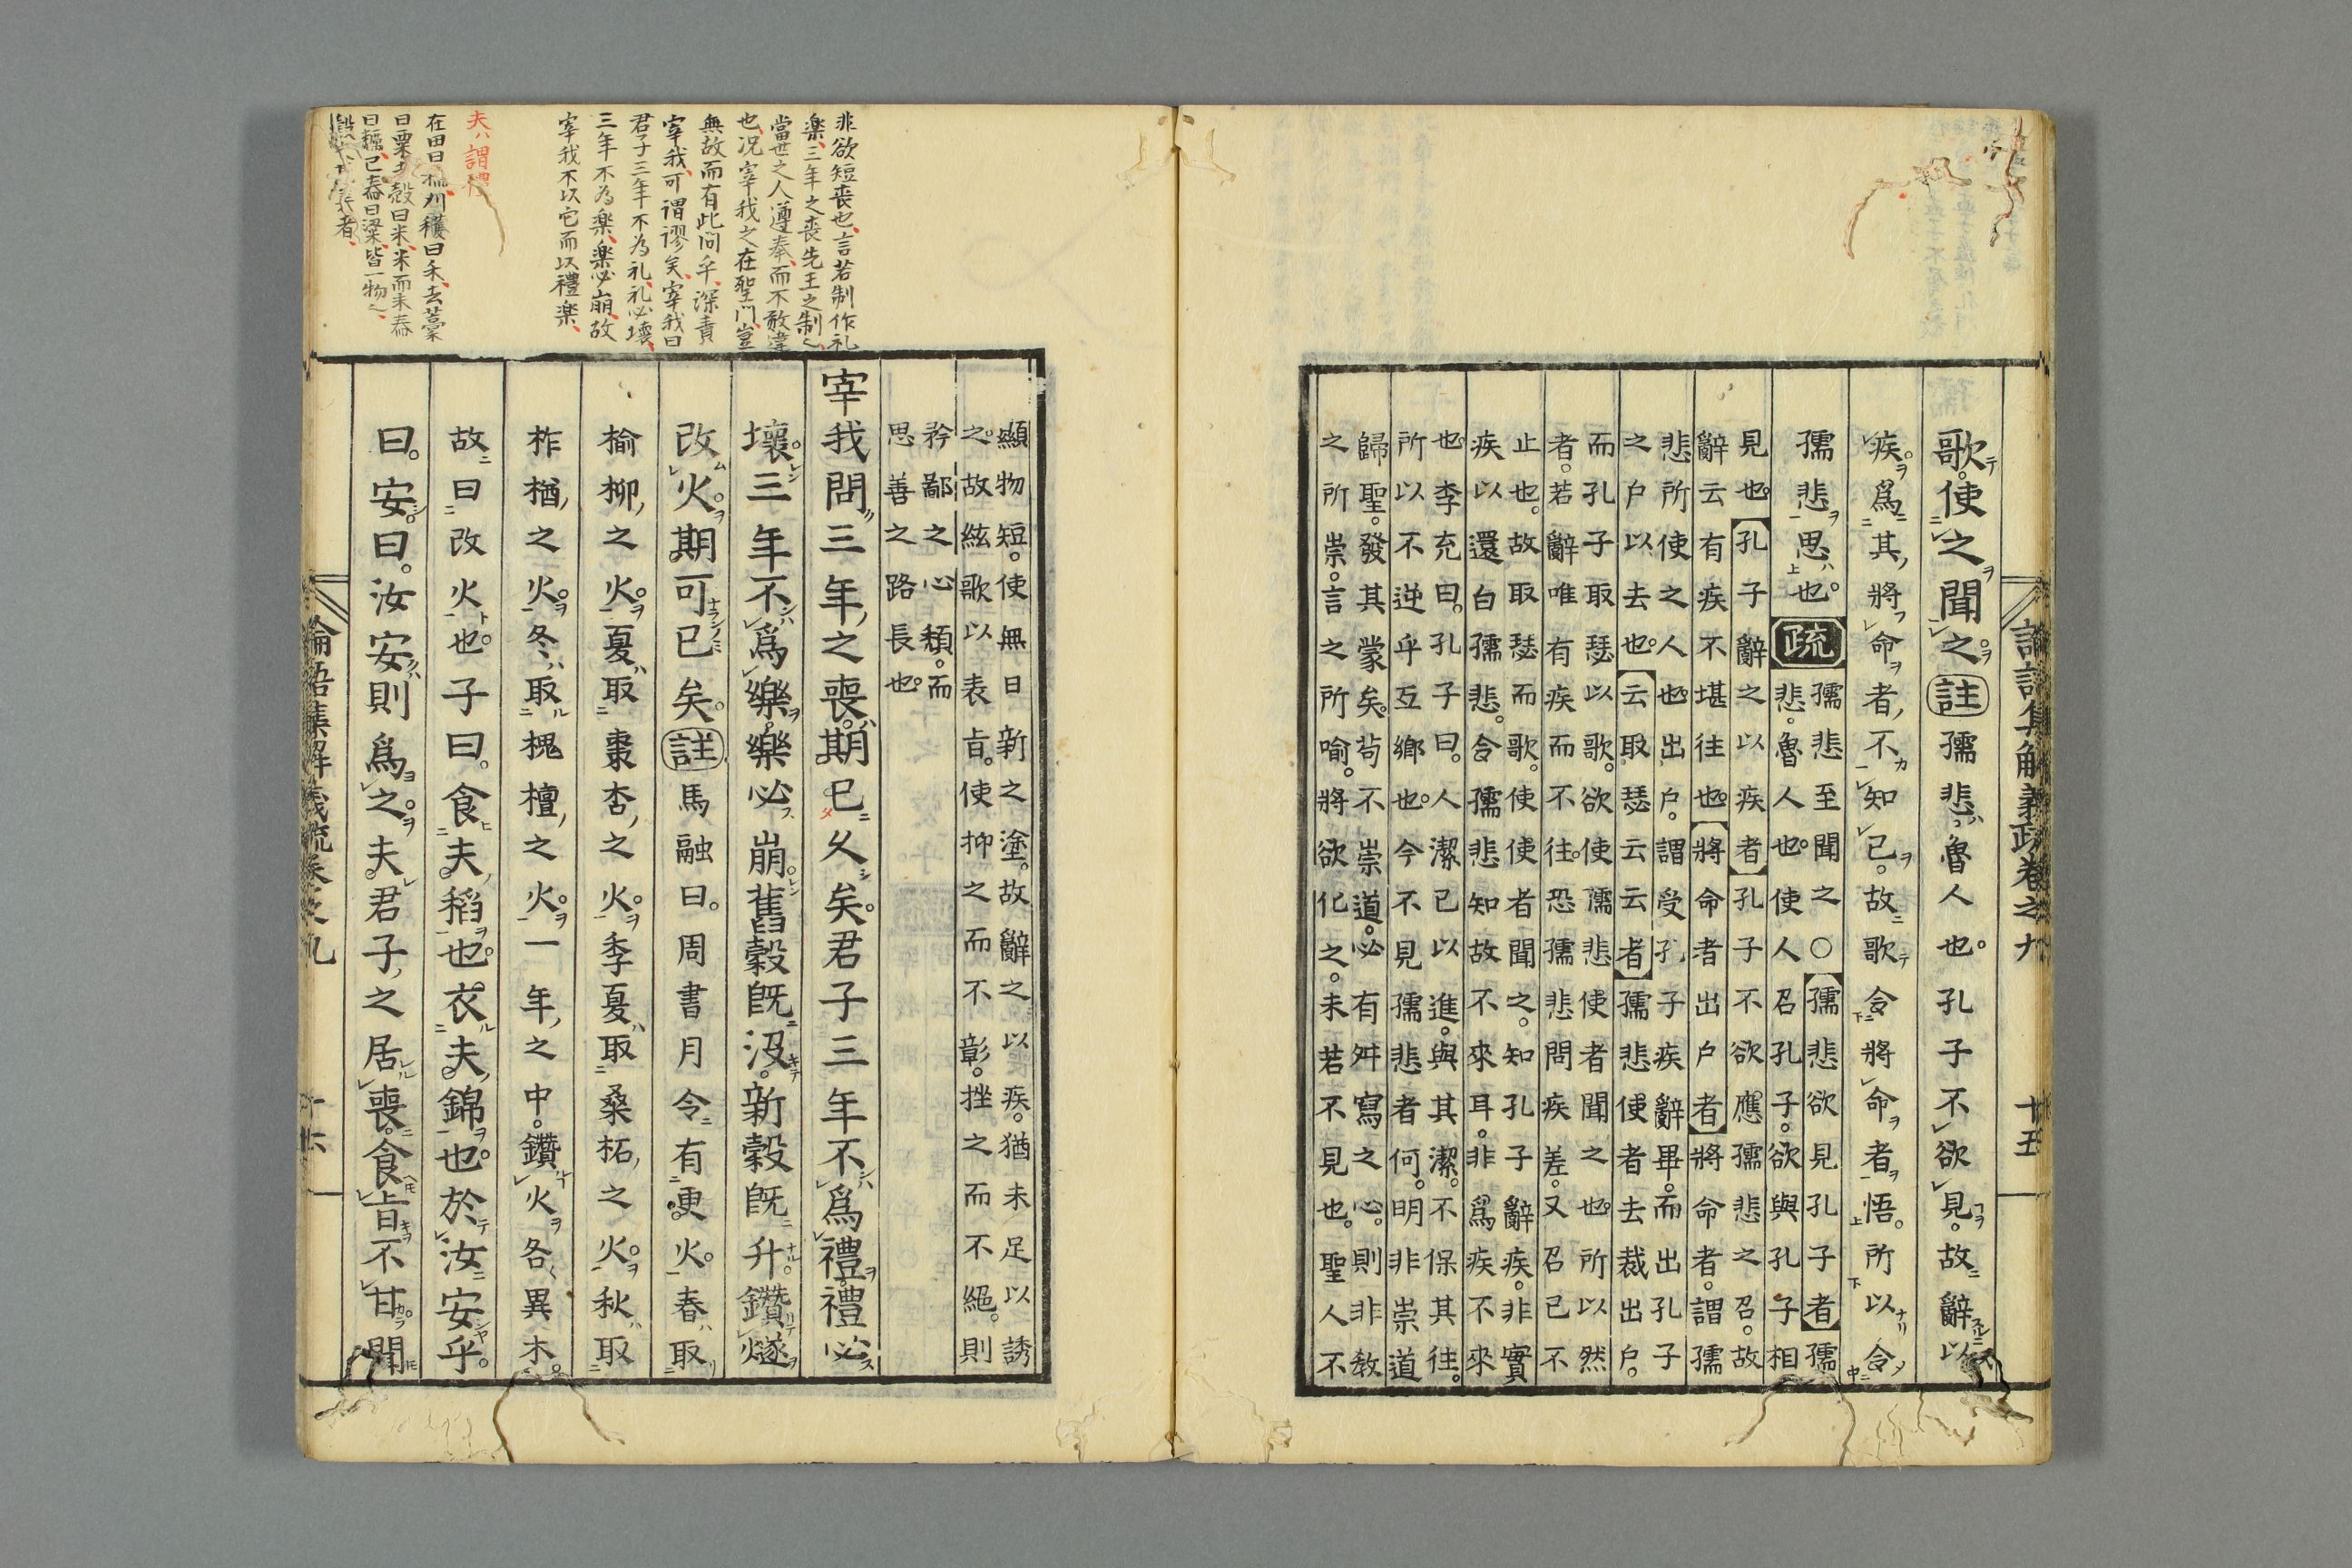 論語集解義疏卷之九
十五
歌使之聞之註孺悲魯人也孔子不欲見故辭以
疾爲其將命者不知已故歌令將命者悟所以令
孺悲思也疏孺悲至聞之○孺悲欲見孔子者孺
悲魯人也使人召孔子欲與孔子相
見也孔子辭之以疾者孔子不欲應孺悲之召故
辭云有疾不堪往也將命者出户者將命者謂孺
悲所使之人也出户謂受孔子疾辭畢而出孔子
之户以去也云取瑟云云者孺悲使者去裁出户
而孔子取瑟以歌欲使孺悲使者聞之也所以然
者若辭唯有疾而不往恐孺悲問疾差又召已不
止也故取瑟而歌使使者聞之知孔子辭疾非實
疾以還白孺悲令孺悲知故不來耳非爲疾不來
也李充曰孔子曰人潔已以進與其潔不保其往
所以不逆乎互鄉也今不見孺悲者何明非崇道
歸聖發其蒙矣苟不崇道必有舛寫之心則非教
之所崇言之所喻將欲化之未若不見也聖人不
顯物短使無日新之塗故辭之以疾猶未足以誘
之故絃歌以表旨使抑之而不彰挫之而不絕則
矜鄙之心頹而
思善之路長也
宰我問三年之喪期已久矣君子三年不爲禮禮必
壞三年不爲樂樂必崩舊穀既沒新穀既升鑽燧
改火期可已矣註馬融曰周書月令有更火春取
榆柳之火夏取棗杏之火季夏取桑柘之火秋取
柞楢之火冬取槐檀之火一年之中鑽火各異木
故曰改火也子曰食夫稻也衣夫錦也於汝安乎
曰安曰汝安則爲之夫君子之居喪食旨不甘聞
論語集解義疏卷之九
十六
非欲短喪也言若制作礼
樂三年之喪先王之制
當世之人遵奉而不敢違
也况宰我之在聖門豈
無故而有此问乎深責
宰我可謂謬矣宰我曰
君子三年不为礼礼必壞
三年不为樂樂必崩故
宰我不以它而以禮樂
夫ハ謂禮
在田曰刈穫曰禾去藁
曰粟土殼曰米米而未舂
曰糲已舂曰粱皆一物之
者